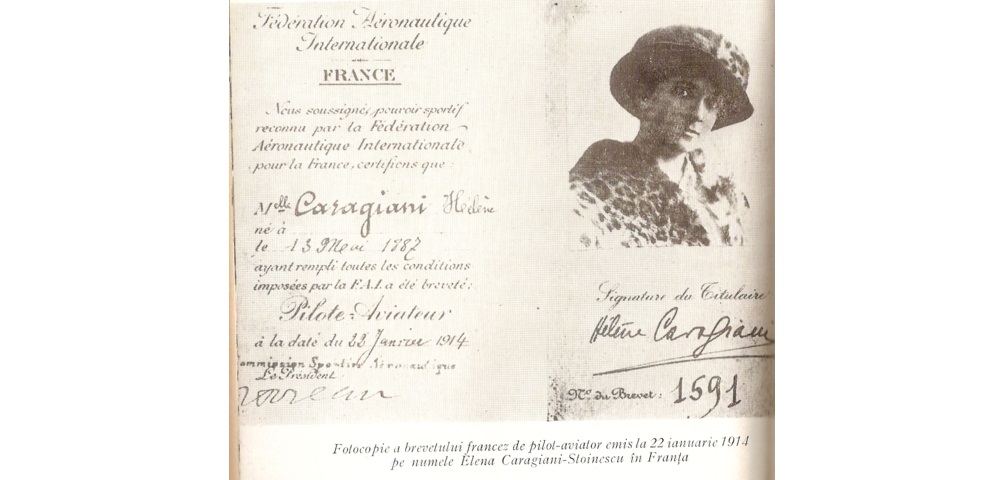 Fédération Aéronautique
Internationale
FRANCE
Nous soussignés, pouvoir sportif
reconnu par la Fédération
Aéronautique Internationale
pour la France, certifions que :
Melle Caragiani Hélène
né à
le 13 Mai 1887
ayant rempli toutes les conditions
imposées par la F.A.I. a été breveté:
Pilote-Aviateur
à la date du 22 Janvier 1914
Commission Sportive Aéronautique
Le Président
Signature du Titulaire
Hélène Caragiani
No. du Brevet : 1591
Fotocopie a brevetului francez de pilot-aviator emis la 22 ianuarie 1914
pe numele Elena Caragiani-Stoinescu în Franța